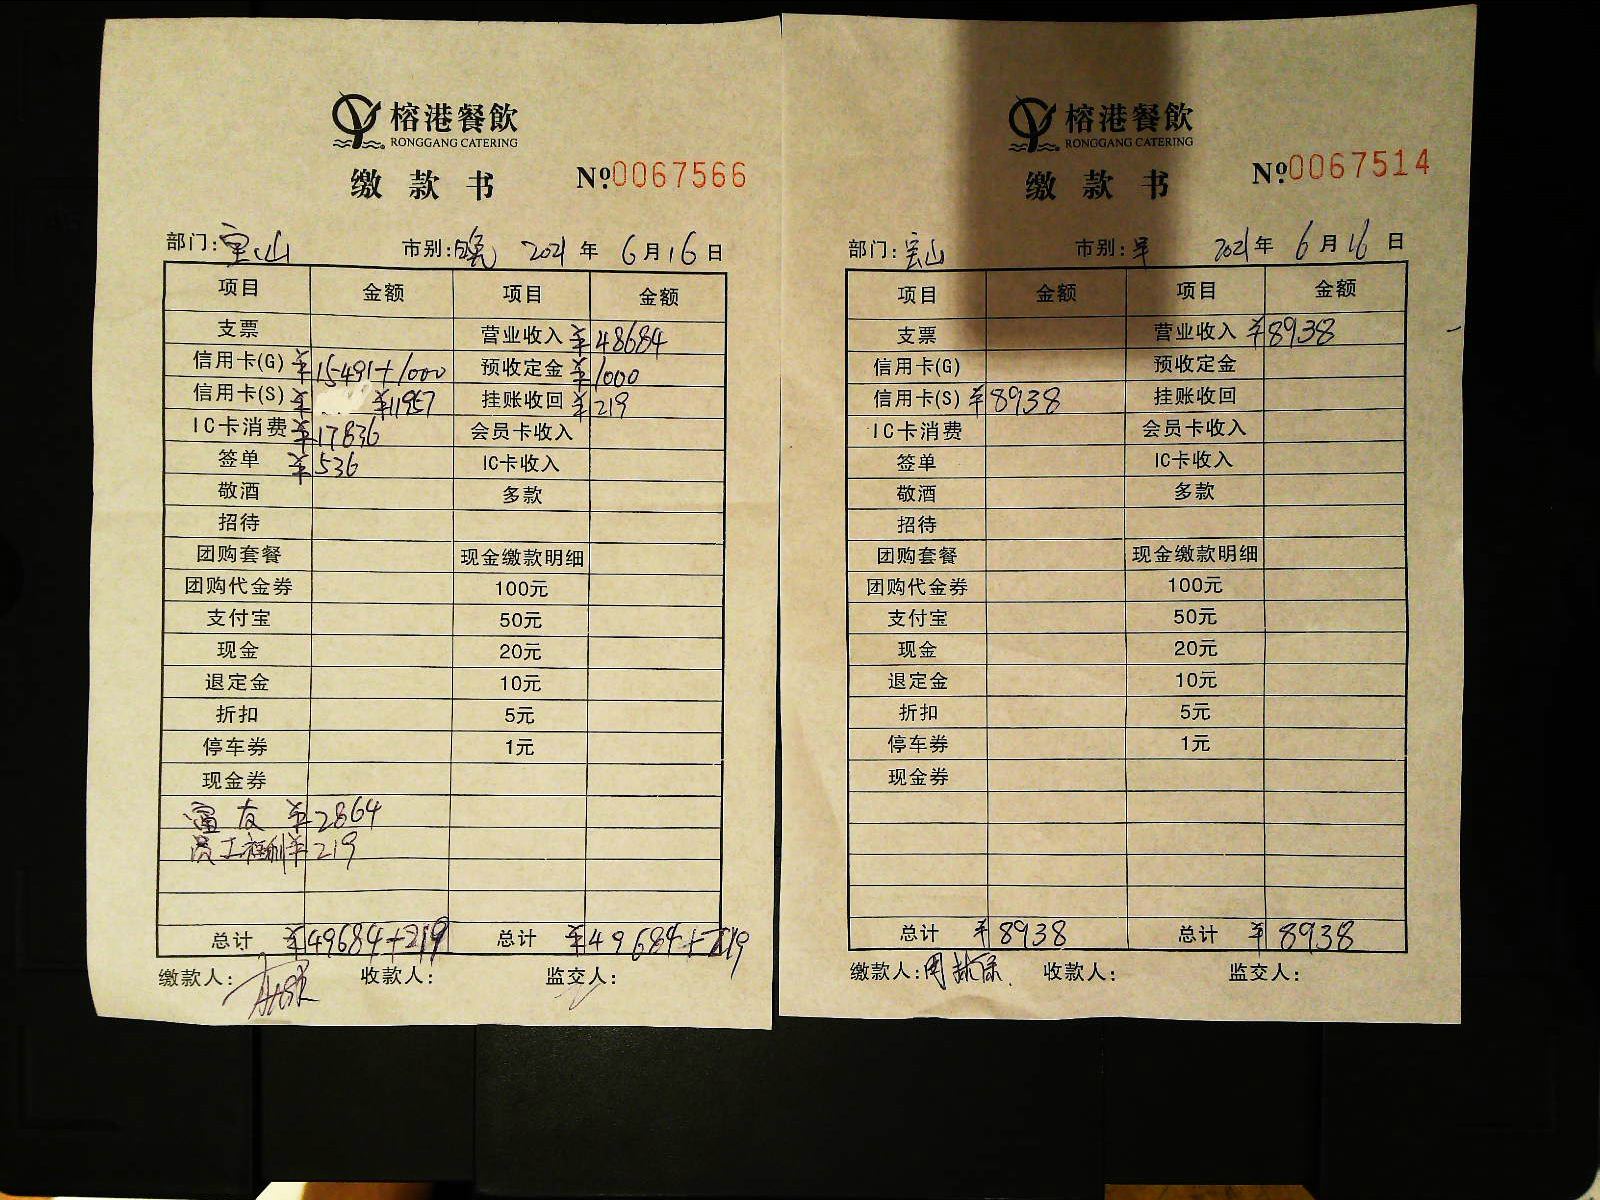 榕港餐飲
RONGGANG CATERING
缴款书 Nº:0067566
部门:宝山 市别:晚 2021年6月16日
项目 金额 项目 金额
支票 营业收入 ¥48684
信用卡(G) ¥15491+1000 预收定金 ¥1000
信用卡(S) ¥ ¥11957 挂账收回 ¥219
IC卡消费 ¥17836 会员卡收入
签单 ¥536 IC卡收入
敬酒 多款
招待
团购套餐 现金缴款明细
团购代金券 100元
支付宝 50元
现金 20元
退定金 10元
折扣 5元
停车券 1元
现金券
富友 ¥2864
员工福利 ¥219
总计 ¥49684+219 总计 ¥49684+219
缴款人: 收款人: 监交人:
榕港餐飲
RONGGANG CATERING
缴款书 Nº:0067514
部门:宝山 市别:早 2021年6月16日
项目 金额 项目 金额
支票 营业收入 ¥8938
信用卡(G) 预收定金
信用卡(S) ¥8938 挂账收回
IC卡消费 会员卡收入
签单 IC卡收入
敬酒 多款
招待
团购套餐 现金缴款明细
团购代金券 100元
支付宝 50元
现金 20元
退定金 10元
折扣 5元
停车券 1元
现金券
总计 ¥8938 总计 ¥8938
缴款人: 收款人: 监交人: